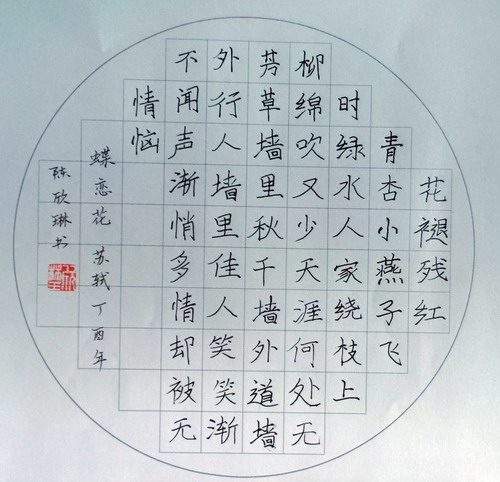 花褪残红
青杏小燕子飞
时绿水人家绕枝上
柳绵吹又少天涯何处无
芳草墙里秋千墙外道墙
外行人墙里佳人笑笑渐
不闻声渐悄多情却被无
情恼
蝶恋花 苏轼丁酉年
陈欣琳书